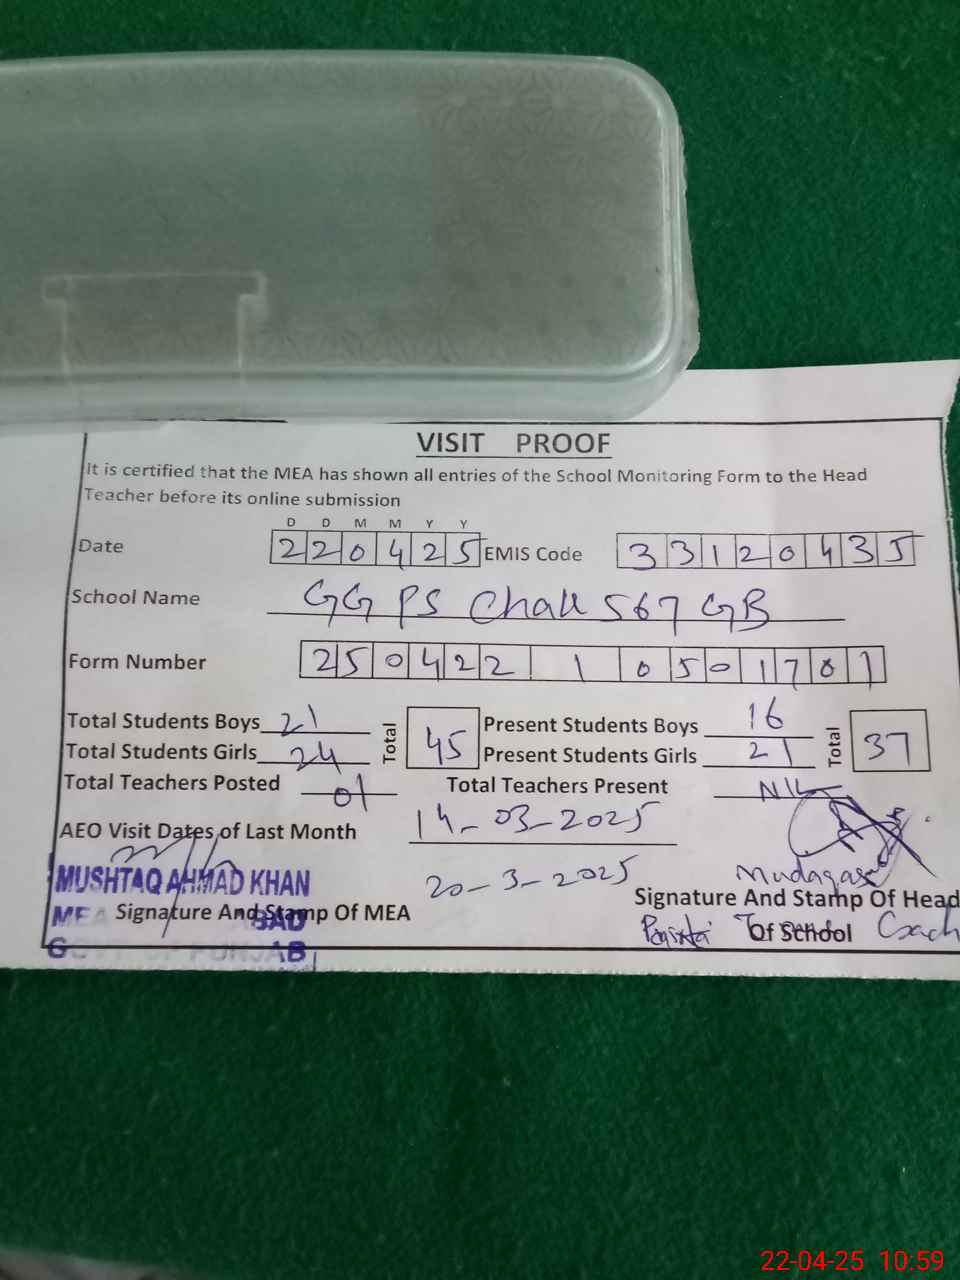 VISIT PROOF
It is certified that the MEA has shown all entries of the School Monitoring Form to the Head
Teacher before its online submission
D D M M Y Y
Date 220425 EMIS Code 33120435
School Name GGPS Chak 567 GB
Form Number 250422 1 0501701
Total Students Boys 21 Total 45 Present Students Boys 16 Total 37
Total Students Girls 24 Present Students Girls 21
Total Teachers Posted 01 Total Teachers Present Nil
AEO Visit Dates of Last Month 14-03-2025
20-3-2025
MUSHTAQ AHMAD KHAN
Signature And Stamp Of MEA
Signature And Stamp Of Head
Of School
22-04-25 10:59